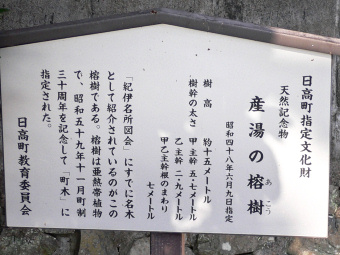 日高町指定文化財
天然記念物
産湯の榕樹
あこう
昭和四十八年六月九日指定
樹高 約十五メートル
樹幹の太さ 甲主幹 五・七メートル
乙主幹 二・九メートル
甲乙主幹根のまわり
七メートル
「紀伊名所図会」にすでに名木
として紹介されているのがこの
榕樹である。榕樹は亜熱帯植物
で、昭和五十九年十一月町制
三十周年を記念して「町木」に
指定された。
日高町教育委員会